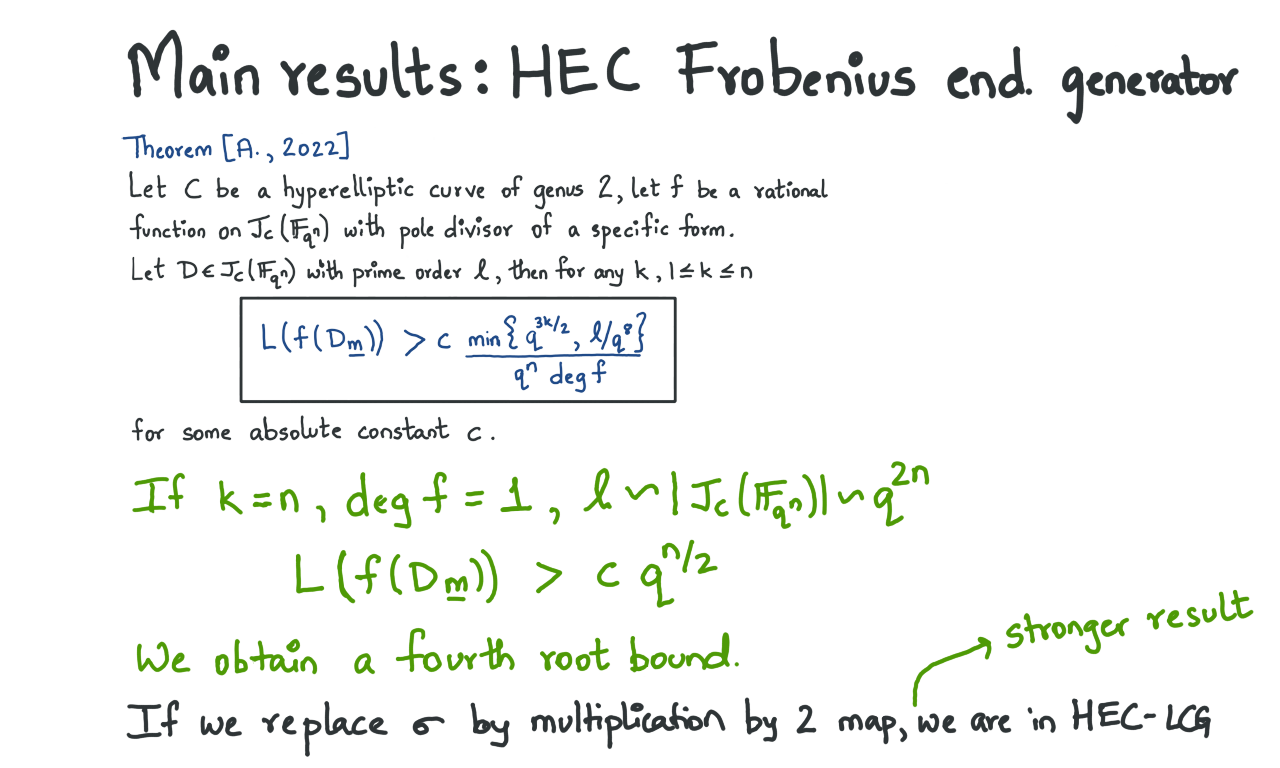 Main results: HEC Frobenius end. generator
Theorem [A., 2022]
Let C be a hyperelliptic curve of genus 2, let f be a rational
function on J_C(𝔽_{q^n}) with pole divisor of a specific form.
Let D ∈ J_C(𝔽_{q^n}) with prime order ℓ, then for any k, 1 ≤ k ≤ n
L(f(D_m)) > c min{q^{3k/2}, ℓ/q^8} / q^n deg f
for some absolute constant c.
If k = n, deg f = 1, ℓ ∼ |J_C(𝔽_{q^n})| ∼ q^{2n}
L(f(D_m)) > c q^{n/2}
stronger result
We obtain a fourth root bound.
If we replace σ by multiplication by 2 map, we are in HEC-LCG